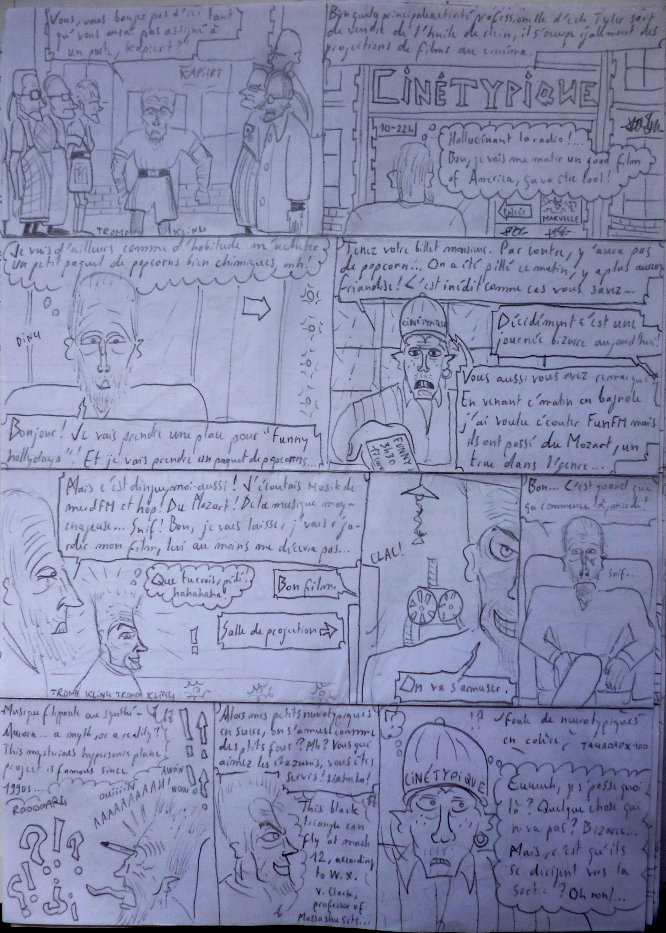 Vous, vous bougez pas d'ici tant
qu'vous aurai pas assigné à
un poste, kapiert?
KAPIERT
TROMA KLING
Bien que la principale activité professionnelle d'
Tyler soit
de vendre de l'huile de ricin, il s'occupe également des
projections de films au cinéma.
CINÉTYPIQUE
10-22H
Hallucinant la radio!...
Bon, je vais me mater un good film
of America, ça va être cool!
ENTRÉE
MARVILLE
Je vais d'ailleurs comme d'habitude m'acheter
un petit paquet de popcorns bien chimiques, mh!
DING
Bonjour! Je vais prendre une place pour "Funny
hollydays"! Et je vais prendre un paquet de popcorns...
Tenez votre billet monsieur. Par contre, y'aura pas
de popcorn... On a été pillé ce matin, y a plus aucune
friandise! C'est inédit comme cas vous savez...
CINÉTYPIQUE
Décidément c'est une
journée bizarre aujourd'hui!
Vous aussi vous avez remarqué?
En venant c'matin en bagnole
j'ai voulu écouter FunFM mais
ils ont passé du Mozart, un
truc dans l'genre...
FUNNY
3h30
Mais c'est dingue, moi aussi! J'écoutais Musik de
merdFM et hop! Du Mozart! De la musique moy-
enageuse... Snif! Bon, je vous laisse, j'vais r'ga-
rder mon film, lui au moins me décevra pas...
Que tu crois,
hahahaha!
Bon film.
Salle de projection
TROMA KLING TROMA KLING
CLAC!
On va s'amuser.
Bon... C'est quand que
ça commence
snif...
Musique flippante au synthé
Aurora... a myth, or a reality?
This mysterious hypersonic plane
project is famous since
1990s...
ROOOOAARR
OUIIIIN
AAAAAAAAAH!
Alors mes petits neurotypiques
en sucre, on s'amuse comme
des p'tits fous? Mh? Vous qui
aimiez les
vous êtes
servis! Hahaha!
This black
triangle can
fly at mach
12, according
to W.X.
V. Clark,
professor of
Massachusets...
!?
Foule de neurotypiques
en colère
CINÉTYPIQUE
Euuuuh, y s'passe quoi
là? Quelque chose qui
n'va pas? Bizarre...
Mais, c'est qu'ils
se dirigent vers la
sortie? Oh non!...